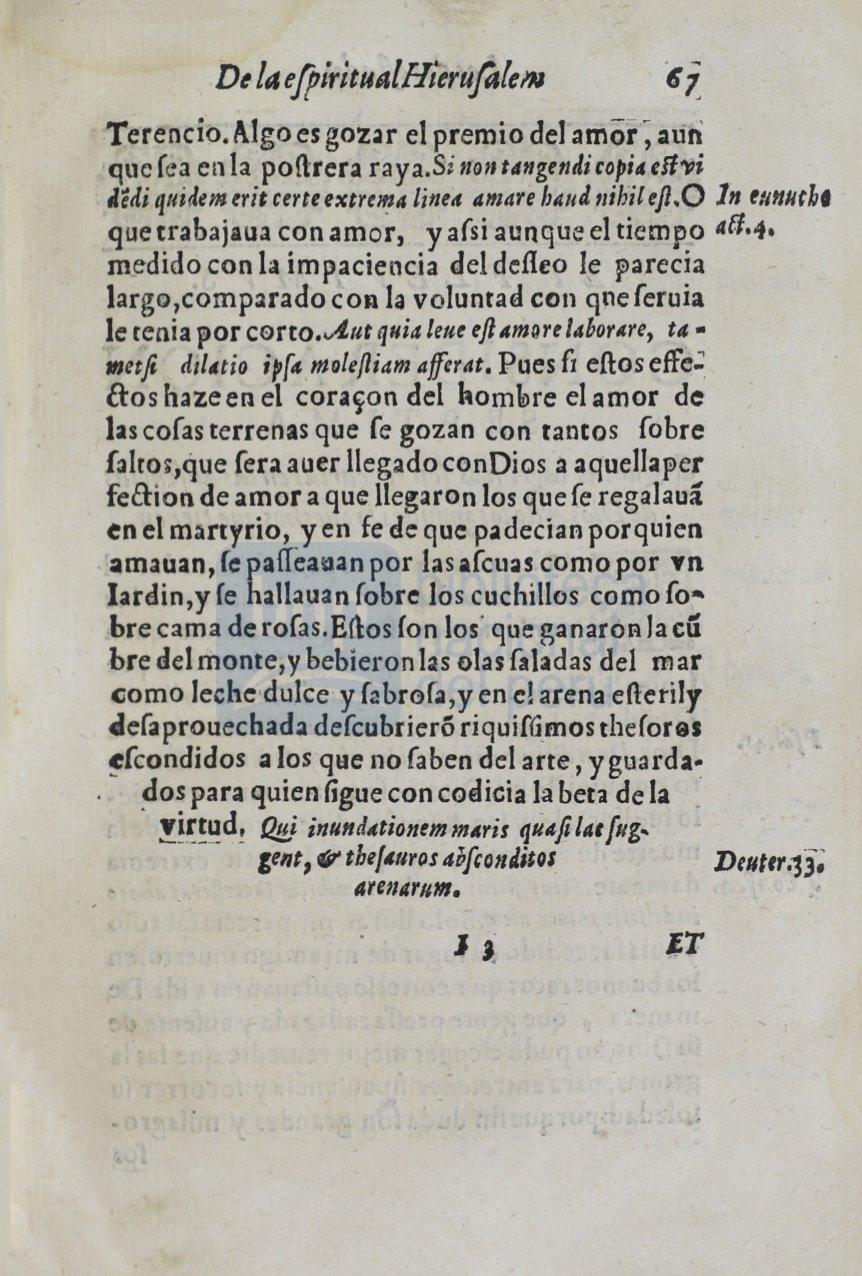 De la eſpiritual Hieruſalem 67
Terencio. Algo es gozar el premio del amor, aun
que ſea en la poſtrera raya. Si non tangendi copia eſt vi
dẽdi quidem erit certe extrema linea amare haud nihil eſt. O
In eunucho
act. 4.
que trabajaua con amor, y aſsi aunque el tiempo
medido con la impaciencia del deſſeo le parecia
largo, comparado con la voluntad con qne ſeruia
le tenia por corto. Aut quia leue eſt amore laborare, ta-
metſi dilatio ipſa moleſtiam afferat. Pues ſi eſtos effe-
ctos haze en el coraçon del hombre el amor de
las coſas terrenas que ſe gozan con tantos ſobre
ſaltos, que ſera auer llegado con Dios a aquella per
fection de amor a que llegaron los que ſe regalauã
en el martyrio, y en fe de que padecian por quien
amauan, ſe paſſeauan por las aſcuas como por vn
Iardin, y ſe hallauan ſobre los cuchillos como ſo-
bre cama de roſas. Eſtos ſon los que ganaron la cũ
bre del monte, y bebieron las olas ſaladas del mar
como leche dulce y ſabroſa, y en el arena eſteril y
deſaprouechada deſcubrierõ riquiſſimos theſoros
eſcondidos a los que no ſaben del arte, y guarda-
dos para quien ſigue con codicia la beta de la
virtud. Qui inundationem maris quaſi lac ſug-
gent, & theſauros abſconditos
arenarum.
Deuter. 33.
I 3 ET